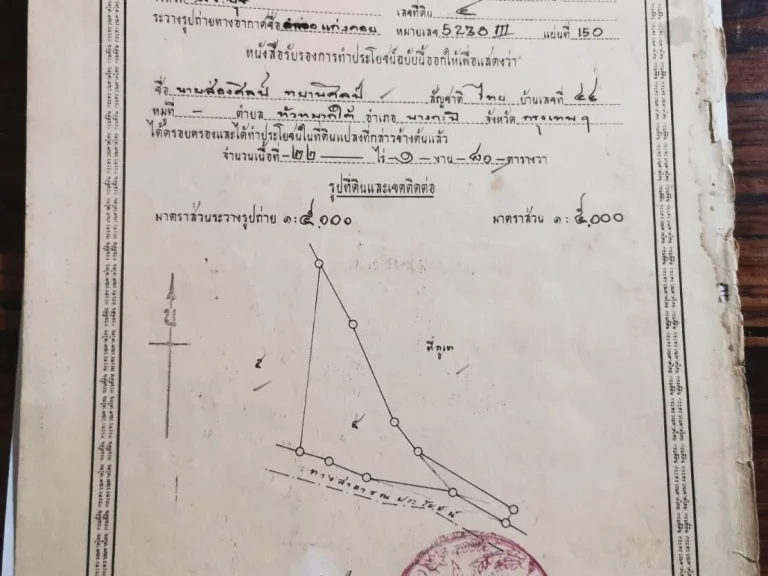 เลขที่ดิน ๕
ระวางรูปถ่ายทางอากาศชื่อ แก่งคอย หมายเลข 5238 III แผ่นที่ 150
หนังสือรับรองการทำประโยชน์ฉบับนี้ออกให้เพื่อแสดงว่า
ชื่อ นาย สัญชาติ ไทย บ้านเลขที่ ๔๔
หมู่ที่ - ตำบล หัวหมากใต้ อำเภอ บางกะปิ จังหวัด กรุงเทพฯ
ได้ครอบครองและได้ทำประโยชน์ในที่ดินแปลงที่กล่าวข้างต้นแล้ว
จำนวนเนื้อที่ ๒๒ ไร่ ๑ งาน ๘๐ ตารางวา
รูปที่ดินและเขตติดต่อ
มาตราส่วนระวางรูปถ่าย ๑:๕,๐๐๐ มาตราส่วน ๑:๕,๐๐๐
น
ที่ภูเขา
๕
ทางสาธารณประโยชน์